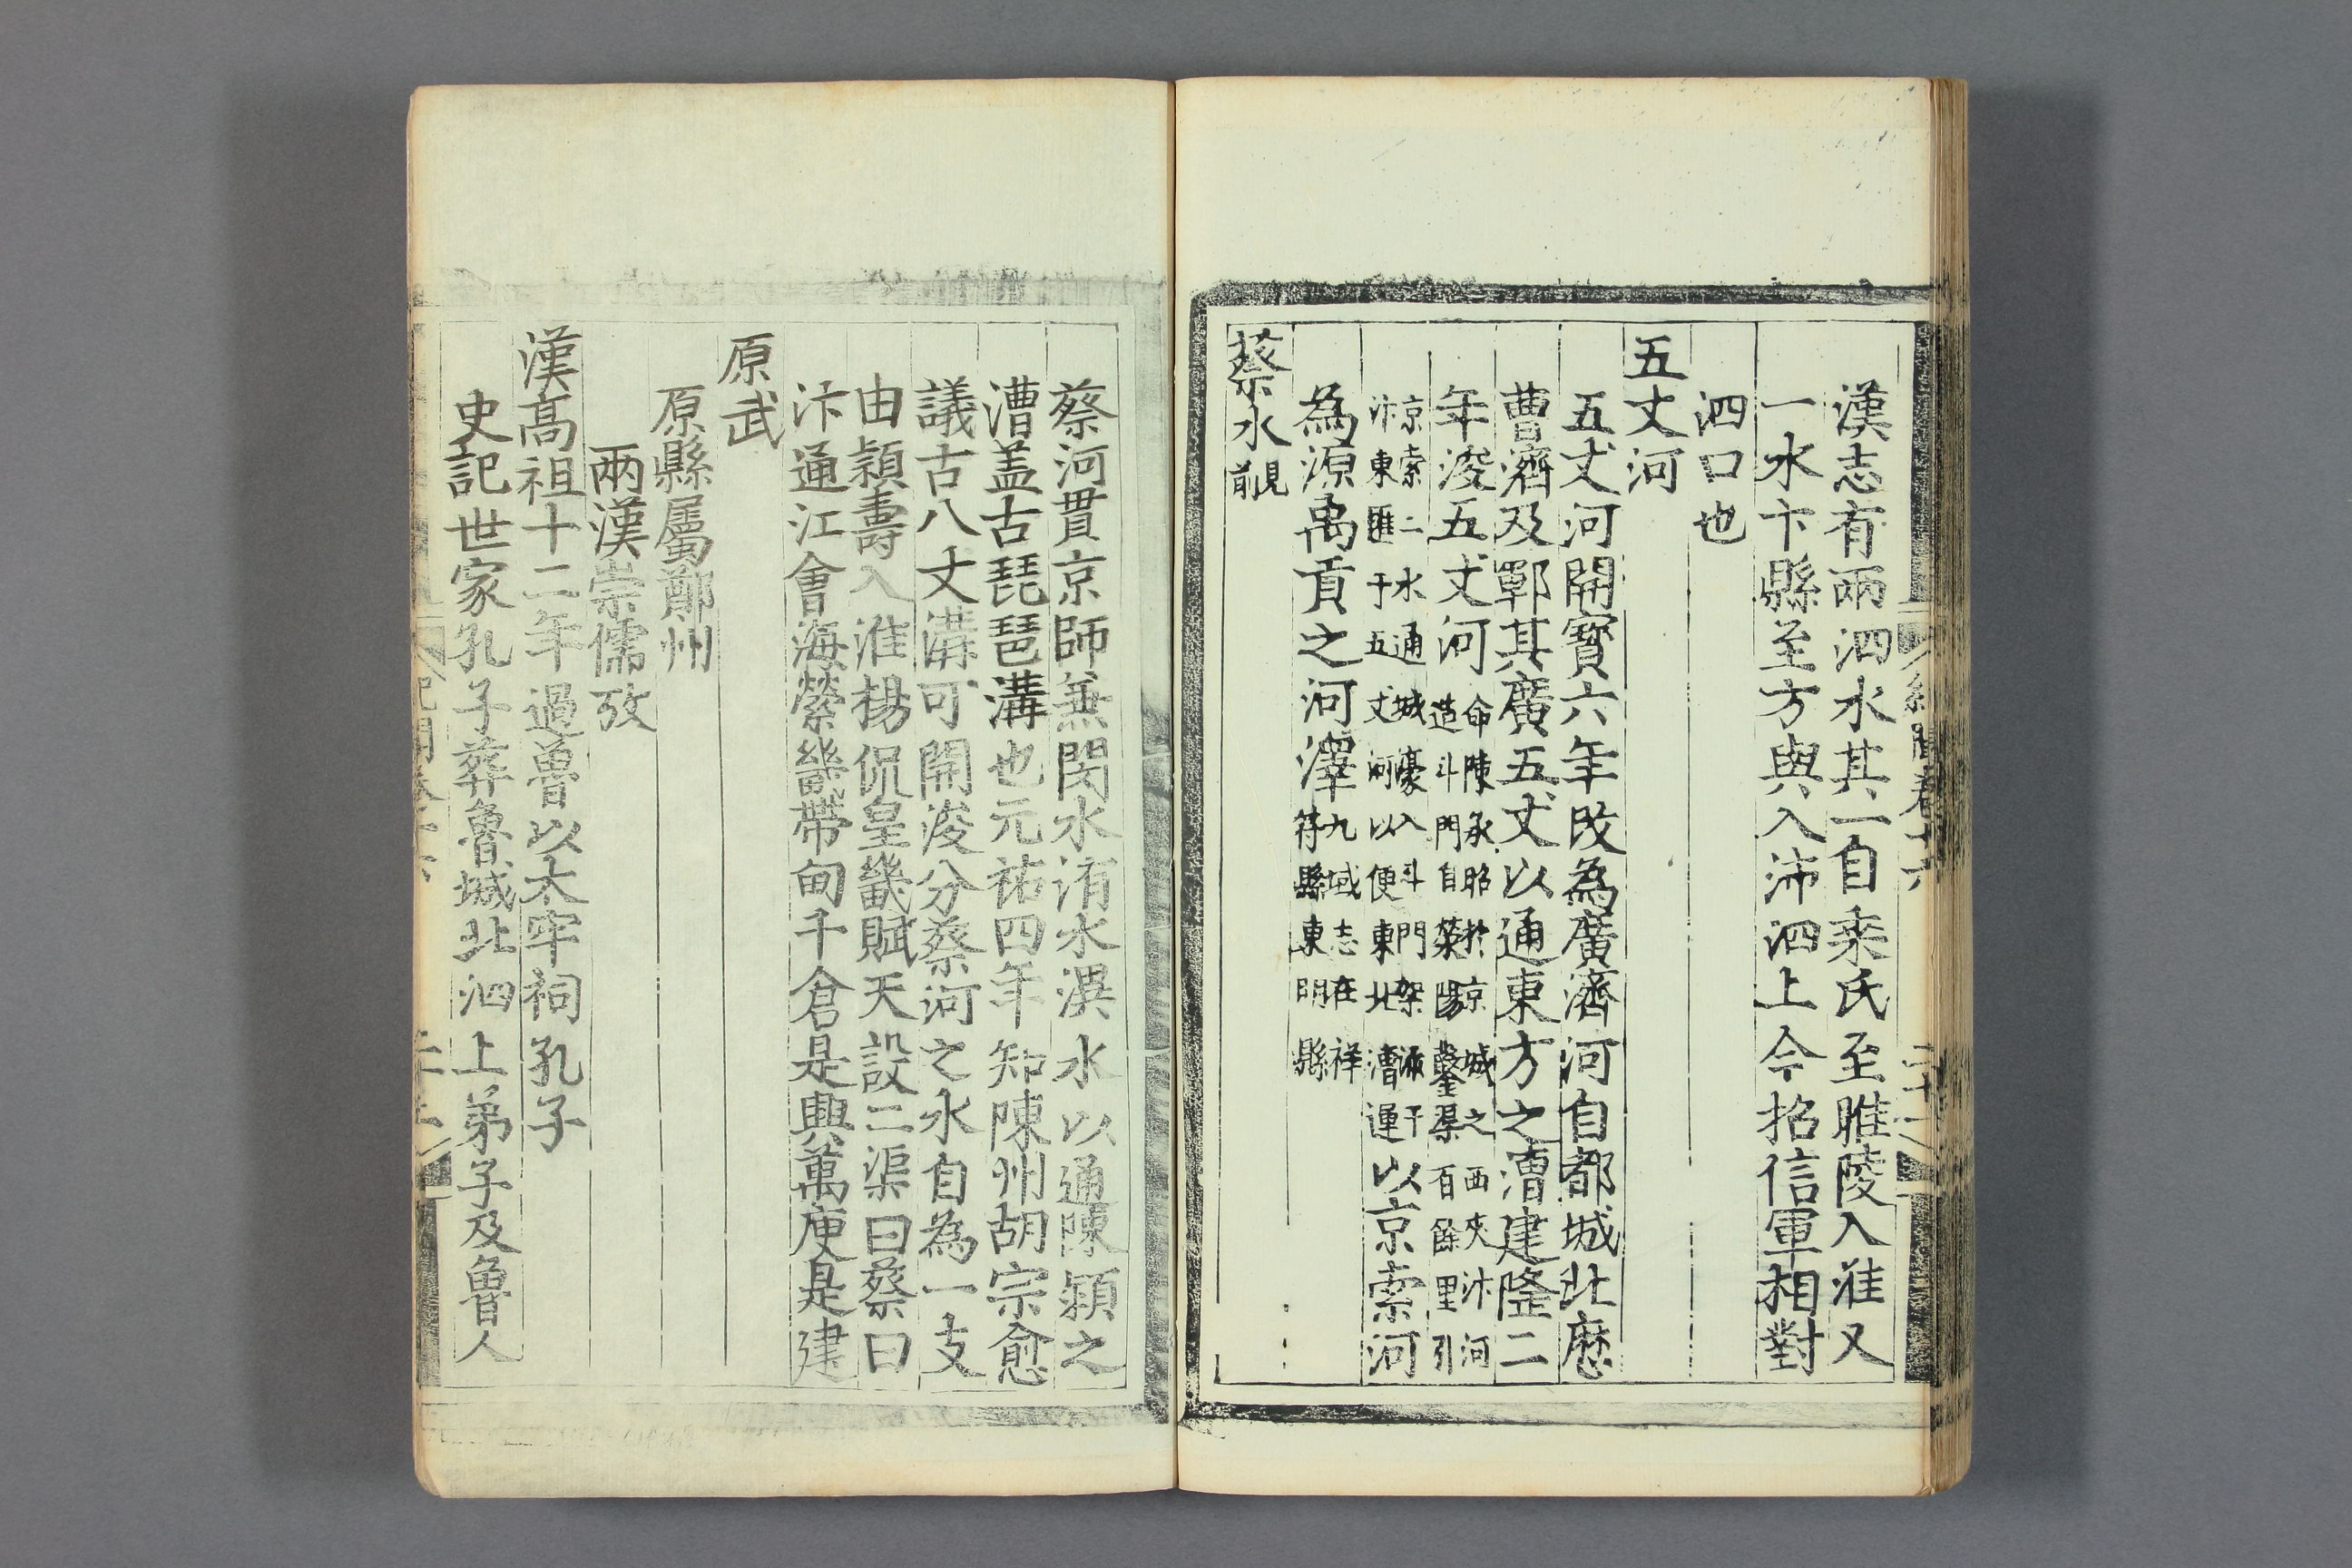 漢志有兩泗水其一自乘氏至睢陵入淮又
一水卞縣至方與入沛泗上今招信軍相對
泗口也
五丈河
五丈河開寶六年改為廣濟河自都城北歷
曹濟及鄆其廣五丈以通東方之漕建隆二
年浚五丈河命陳承昭於京城之西夾汴河
造斗門自荥陽鑿渠百餘里引
京索二水通城濠入斗門架流于
汴東匯于五丈河以便東北漕運以京索河
為源禹貢之河澤九域志在祥
符縣東明縣
蔡水見前
蔡河貫京師兼閔水洧水潩水以通陳潁之
漕盖古琵琶溝也元祐四年知陳州胡宗愈
議古八丈溝可開浚分蔡河之水自為一支
由潁壽入淮楊侃皇畿賦天設二渠曰蔡曰
汴通江會海縈畿帶甸千倉是興萬庾是建
原武
原縣屬鄭州
兩漢崇儒攷
漢髙祖十二年過魯以太牢祠孔子
史記世家孔子葬魯城北泗上弟子及魯人